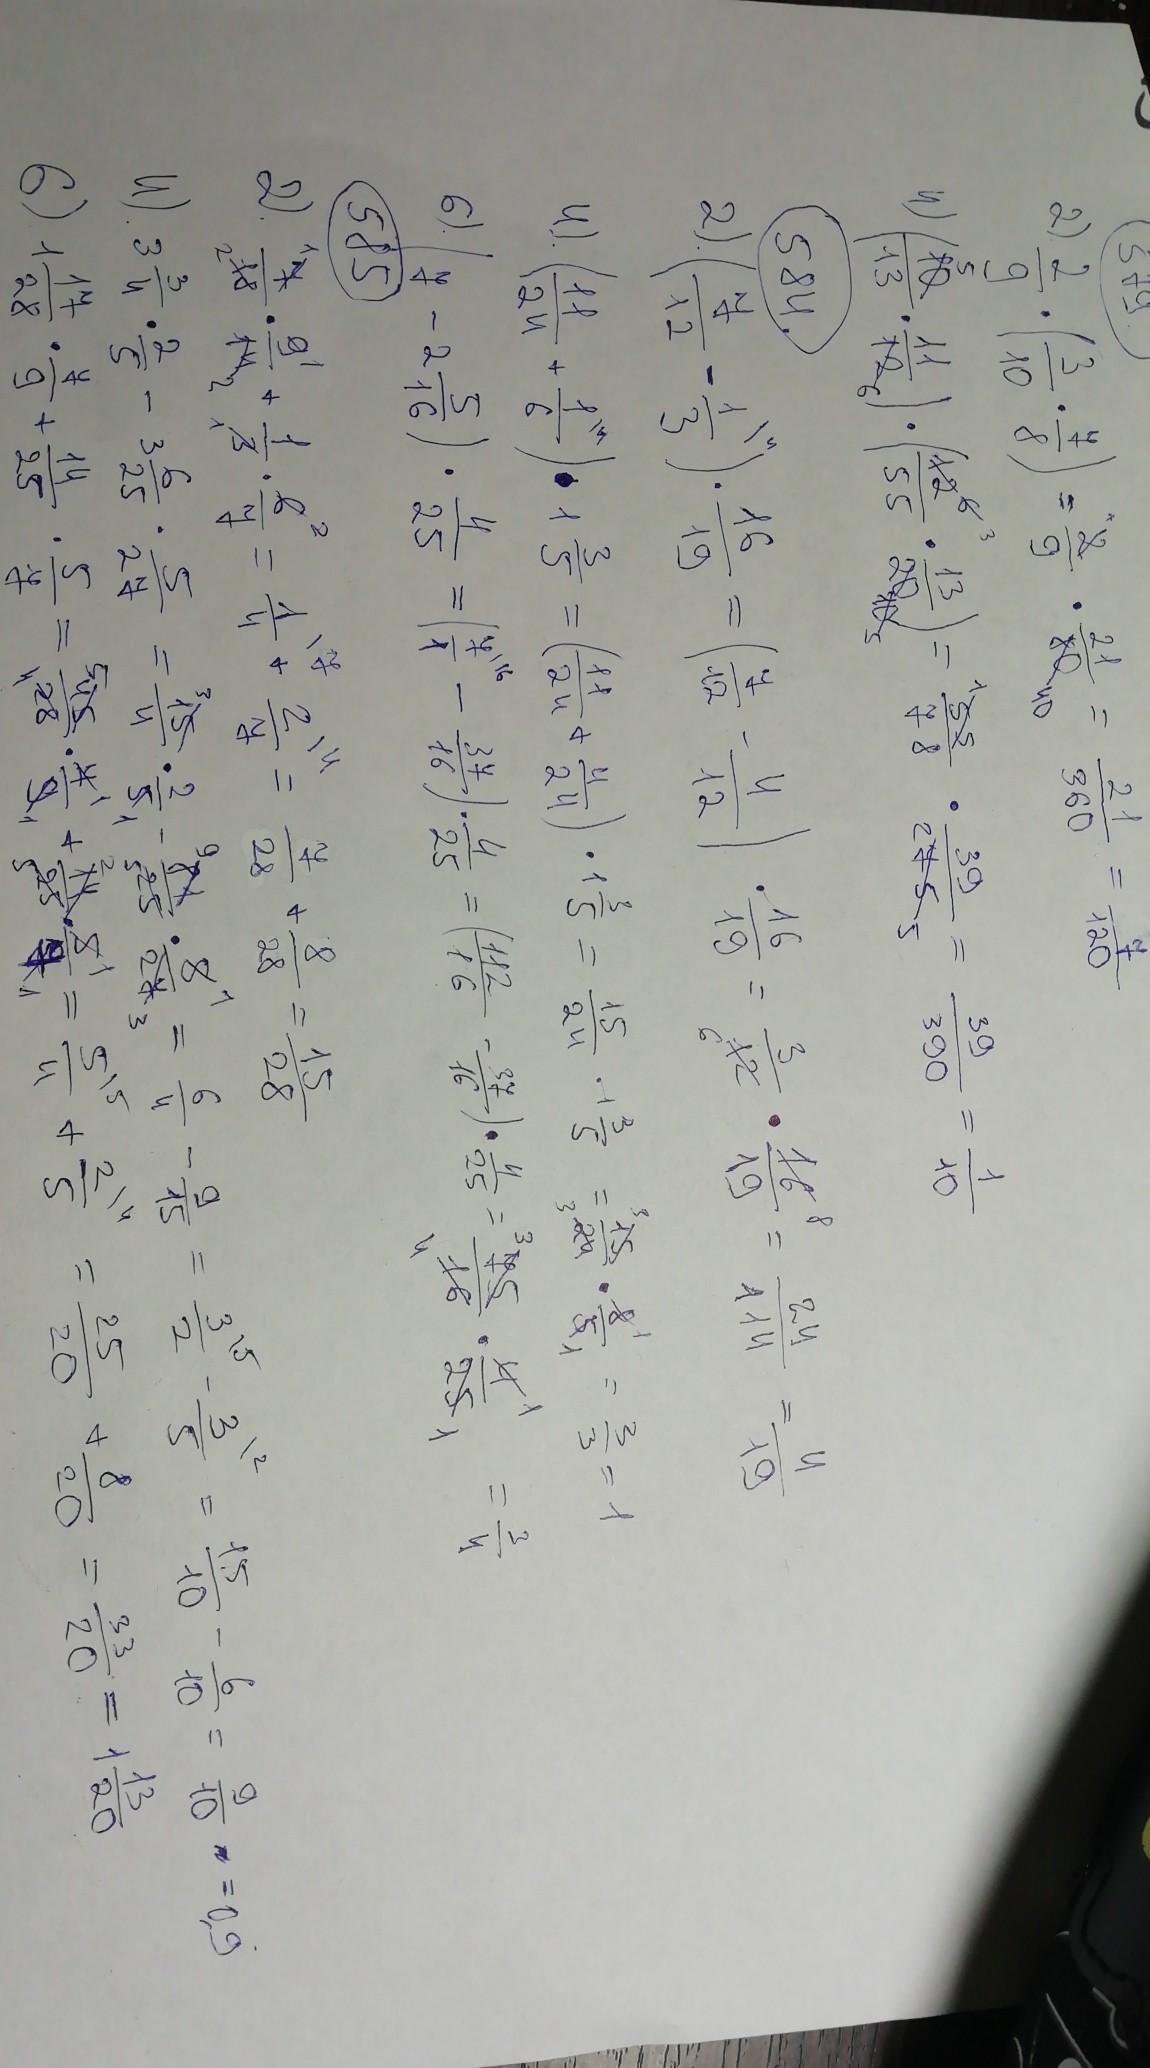 579.
2). 2/9 · (3/10 · 7/8) = 2/9 · 21/80 40 = 21/360 = 7/120
4) (10/13 · 11/12) · (12/55 · 13/20) = 55/78 · 39/275 = 39/390 = 1/10
584.
2). (7/12 - 1/3) · 16/19 = (7/12 - 4/12) · 16/19 = 3/12 · 16/19 = 24/114 = 4/19
4). (11/24 + 1/6) · 1 3/5 = (11/24 + 4/24) · 1 3/5 = 15/24 · 1 3/5 = 15/24 · 8/5 = 3/3 = 1
6). (7 - 2 5/16) · 4/25 = (7/1 - 37/16) · 4/25 = (112/16 - 37/16) · 4/25 = 75/16 · 4/25 = 3/4
585
2). 7/18 · 9/14 + 1/3 · 6/7 = 1/4 + 2/7 = 7/28 + 8/28 = 15/28
4). 3 3/4 · 2/5 - 3 6/25 · 5/27 = 15/4 · 2/5 - 81/25 · 5/27 = 6/4 - 9/15 = 3/2 - 3/5 = 15/10 - 6/10 = 9/10 = 0,9
6) 1 17/28 · 7/9 + 14/25 · 5/7 = 45/28 · 7/9 + 14/25 · 5/7 = 5/4 + 2/5 = 25/20 + 8/20 = 33/20 = 1 13/20